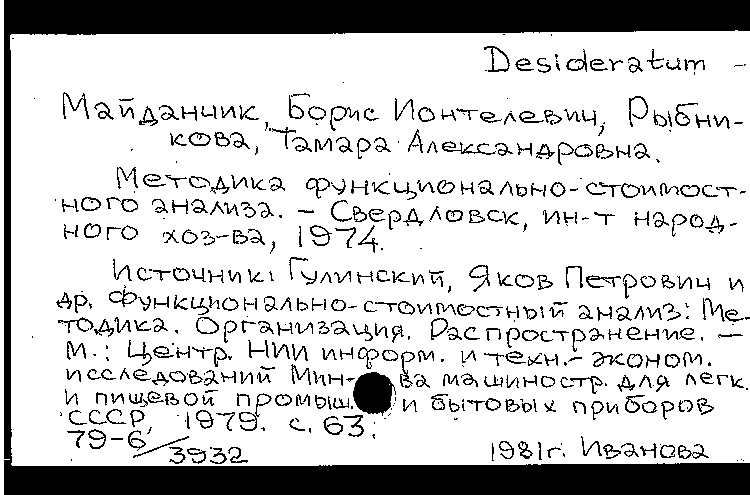 Desideratum -
Майданчик, Борис Ионтелевич, Рыбни-
кова, Тамара Александровна.
Методика функционально-стоимост-
ного анализа. - Свердловск, ин-т народ-
ного хоз-ва, 1974.
Источник: Гулинский, Яков Петрович и
др. Функционально-стоимостный анализ: Ме-
тодика. Организация. Распространение. -
М.: Центр. НИИ информ. и техн.- эконом.
исследований Мин-ва машиностр. для легк.
и пищевой промыш. и бытовых приборов
СССР, 1979. с. 63.
79-6/3932
1981г. Иванова